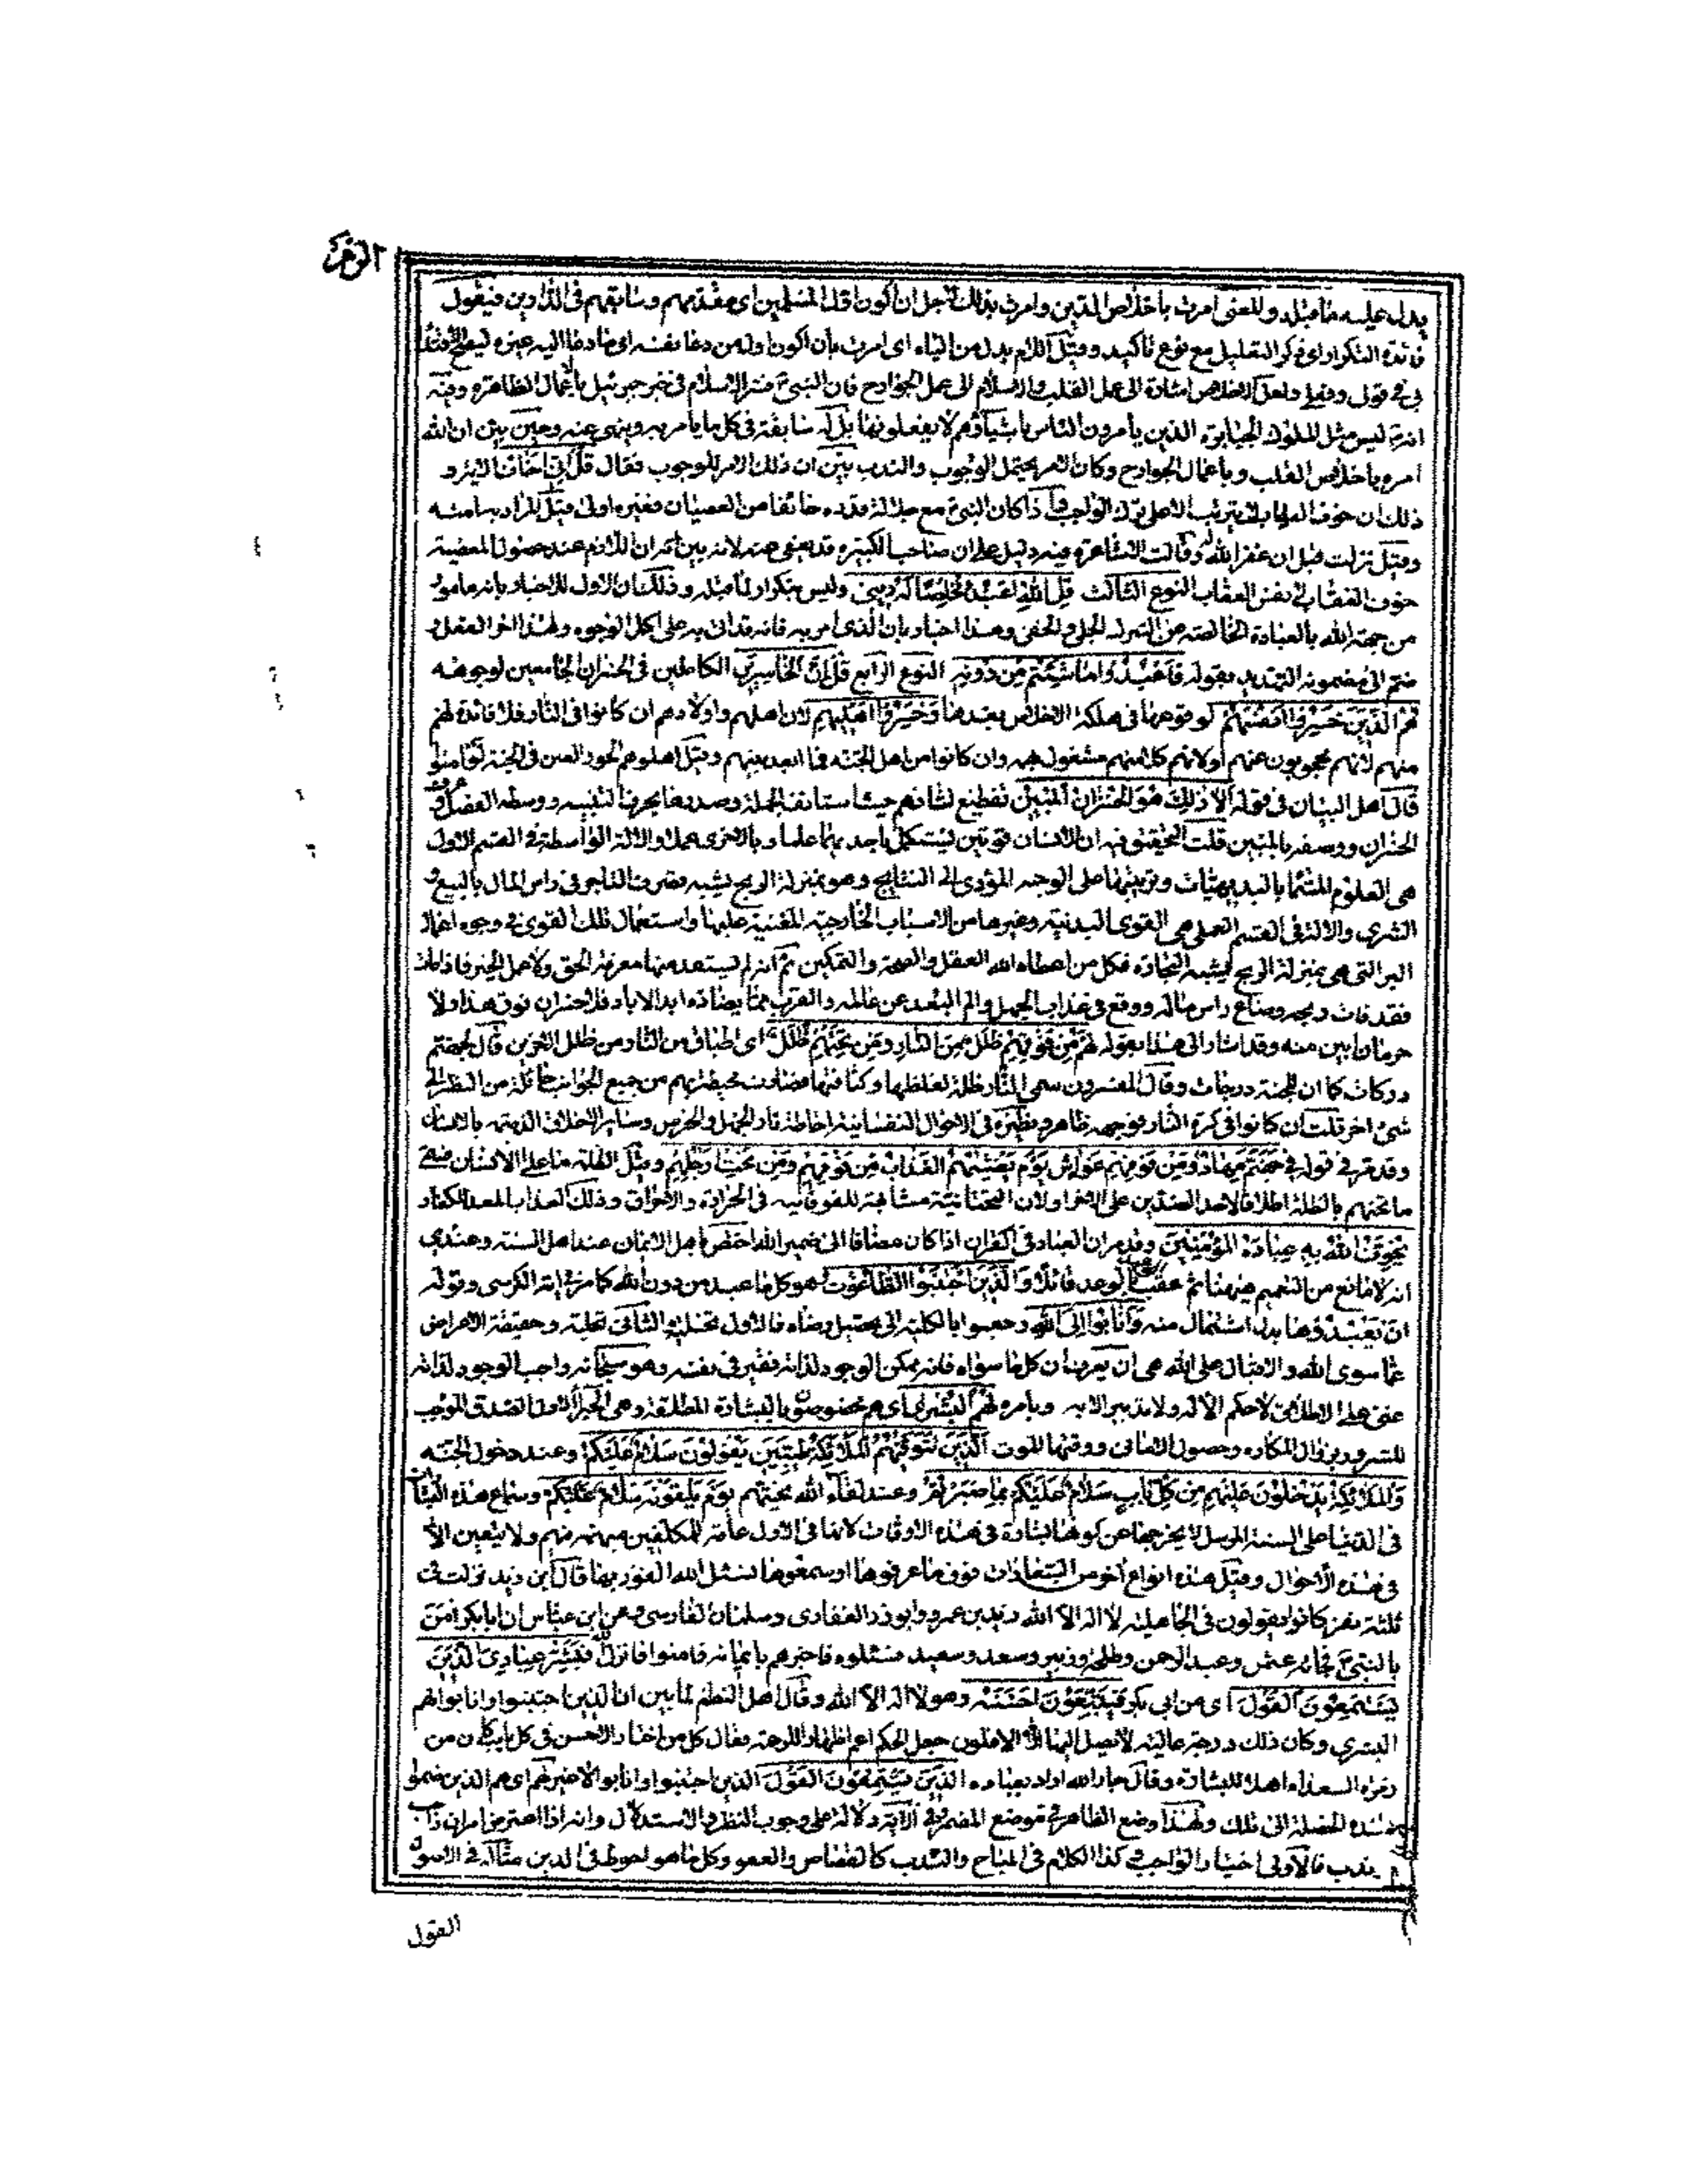 الزمر
يدل عليه ما قبله والمعنى امرت باخلاص الدين وامرت بذلك لاجل ان اكون اول المسلمين اى مقدمهم وسابقهم فى الدارين فيقول
فائدة التكرار اى ذكر التعليل مع نوع تاكيد وقيل اللام بدل من الباء اى امرت بان اكون اول من دعا نفسه اى ما دعا اليه غيره ليصح الاقتداء
بى فى قولى وفعلى ولعل الاخلاص اشارة الى عمل القلب والاسلام الى عمل الجوارح فان النبى فسر الاسلام فى خبر جبرئيل بالاعمال الظاهرة وفيه
انه ليس مثل الملوك الجبابرة الذين يأمرون الناس باشياء وهم لا يفعلونها بل له سابقة فى كل ما يأمر به وينهى عنه وحين بين ان الله
امره باخلاص القلب وباعمال الجوارح وكان الامر يحتمل الوجوب والندب بين ان ذلك الامر للوجوب فقال قل انى اخاف الاية و
ذلك ان خوف العقاب لا يترتب الا على ترك الواجب واذا كان النبى مع جلالة قدره خائفا من العصيان فغيره اولى وقيل المراد به امته
وقيل نزلت قبل ان غفر الله له وقالت الاشاعرة فيه دليل على ان صاحب الكبيرة قد يعفى عنه لانه بين اثر ان اللازم عند حصول المعصية
خوف العقاب لا نفس العقاب النوع الثالث قل الله اعبد مخلصا له دينى وليس بتكرار لما قبله وذلك ان الاول للاخبار بانه مامور
من جهة الله بالعبادة الخالصة عن الشرك الجلى والخفى وهذا اخبار بان الذى امر به فانه قد اتى به على اكمل الوجوه ولهذا اخر الفعل و
ضم الى مضمونه التهديد بقوله فاعبدوا ما شئتم من دونه النوع الرابع قل ان الخاسرين الكاملين فى الخسران الجامعين لوجوهه
هم الذين خسروا انفسهم لوقوعها فى هلكة لا خلاص بعدها وخسروا اهليهم لان اهلهم واولادهم ان كانوا فى النار فلا فائدة لهم
منهم لانهم محجوبون عنهم او لانهم كلا منهم مشغول بهمه وان كانوا من اهل الجنة فما ابعد بينهم وقيل اهلوهم الحور العين فى الجنة لو آمنوا
قال اهل البيان فى قوله الا ذلك هو الخسران المبين تفظيع لشانهم حيث استانف الجملة وصدرها بحرف التنبيه ووسط الفصل وعرف
الخسران ووصفه بالمبين قلت التحقيق فيه ان للانسان قوتين يستكمل باحديهما علما وبالاخرى عملا والالة الواسطة فى القسم الاول
هى العلوم المسماة بالبديهيات وترتيبها على الوجه المؤدى الى النتائج وهو بمنزلة الربح يشبه تصرف التاجر فى راس المال بالبيع و
الشرى والالة فى القسم العملى هى القوى البدنية وغيرها من الاسباب الخارجية المعينة عليها واستعمال تلك القوى فى وجوه اعمال
البر التى هى بمنزلة الربح يشبه التجارة فكل من اعطاه الله العقل والصحة والتمكين ثم انه لم يستفد منها معرفة الحق ولا عمل الخير فاذا مات
فقد فات ربحه وضاع راس ماله ووقع فى عذاب الجهل والم البعد عن عالمه والقرب مما يضاده ابد الاباد فلا خسران فوق هذا ولا
حرمان ابين منه وقد اشار الى هذا بقوله لهم من فوقهم ظلل من النار ومن تحتهم ظلل اى اطباق من النار ومن ظلل لاخرين قال لجهنم
دركات كما ان للجنة درجات وقال المفسرون سمى النار ظلة لغلظها وكثافتها فصارت محيطة بهم من جميع الجوانب حائلة من النظر الى
شئ اخر قلت ان كانوا فى كرة النار فوجهه ظاهر ونظيره فى الاحوال النفسانية احاطة نار الجهل والحرص وسائر الاخلاق الذميمة بالانسان
وقد مر فى قوله لهم من جهنم مهاد ومن فوقهم غواش يوم يغشيهم العذاب من فوقهم ومن تحت ارجلهم وقيل الظلة ما على الانسان فسمى
ما تحتهم بالظلة اطلاقا لاحد الضدين على الاخر او لان التحتانية مشابهة للفوقانية فى الحرارة والاحراق وذلك العذاب المعد للكفار
يخوف الله به عباده المؤمنين وقد مر ان العباد فى القران اذا كان مضافا الى ضمير الله اختص باهل الايمان عند اهل السنة وعندى
انه لا مانع من التعميم ههنا ثم عقب الوعيد بالوعد قائلا والذين اجتنبوا الطاغوت هو كل ما عبد من دون الله كما مر فى اية الكرسى وقوله
ان يعبدوها بدل اشتمال منه وانابوا الى الله رجعوا بالكلية الى تحصيل رضاه فالاول تخلية والثانى تحلية وحقيقة الاعراض
عما سوى الله والاقبال على الله هى ان يعرف ان كل ما سواه فانه ممكن الوجود لذاته فقير فى نفسه وهو سبحانه واجب الوجود لذاته
غنى على الاطلاق لا حكم الا له ولا تدبير الا به وبأمره لهم البشرى اى هم مخصوصون بالبشارة المطلقة وهى الخبر الاول الصدق الموجب
للسرور بزوال المكاره وحصول الامانى ووقتها الموت الذين تتوفيهم الملائكة طيبين يقولون سلام عليكم وعند دخول الجنة
والملائكة يدخلون عليهم من كل باب سلام عليكم بما صبرتم وعند لقاء الله تحيتهم يوم يلقونه سلام عليكم وسماع هذه البشارة
فى الدنيا على السنة الرسل لا يخرجها عن كونها بشارة فى هذه الاوقات لانها فى الاول عامة للمكلفين مبهمة فيهم ولا يتعين الا
فى هذه الاحوال وقيل هذه انواع اخر من السعادات فوق ما عرفوها او سمعوها نسئل الله الفوز بها قال ابن زيد نزلت فى
ثلثة نفر كانوا يقولون فى الجاهلية لا اله الا الله زيد بن عمرو وابو ذر الغفارى وسلمان الفارسى وعن ابن عباس ان ابا بكر امن
بالنبى فجاءه عثمن وعبد الرحمن وطلحة وزبير وسعد وسعيد فسئلوه فاخبرهم بايمانه فامنوا فانزل الله فبشر عبادى الذين
يستمعون القول اى من ابى بكر فيتبعون احسنه وهو لا اله الا الله وقال اهل النظم لما بين ان الذين اجتنبوا وانابوا لهم
البشرى وكان ذلك درجة عالية لا يصل اليها الا الاقلون جعل الحكم اعم اظهارا للرحمة فقال كل من اختار الاحسن فى كل باب كان من
زمرة السعداء اهلا للبشارة وقال جار الله اراد بعباده الذين يستمعون القول الذين اجتنبوا وانابوا لا غيرهم اى هم الذين ضموا
هذه الخصلة الى تلك ولهذا وضع الظاهر فى موضع المضمر وفى الآية دلالة على وجوب النظر والاستدلال وانه اذا اعترض امران واجب و
ندب فالاولى اختيار الواجب وكذا الكلام فى المباح والندب كالقصاص والعفو وكل ما هو احوط فى الدين مثاله فى الاصول
القول